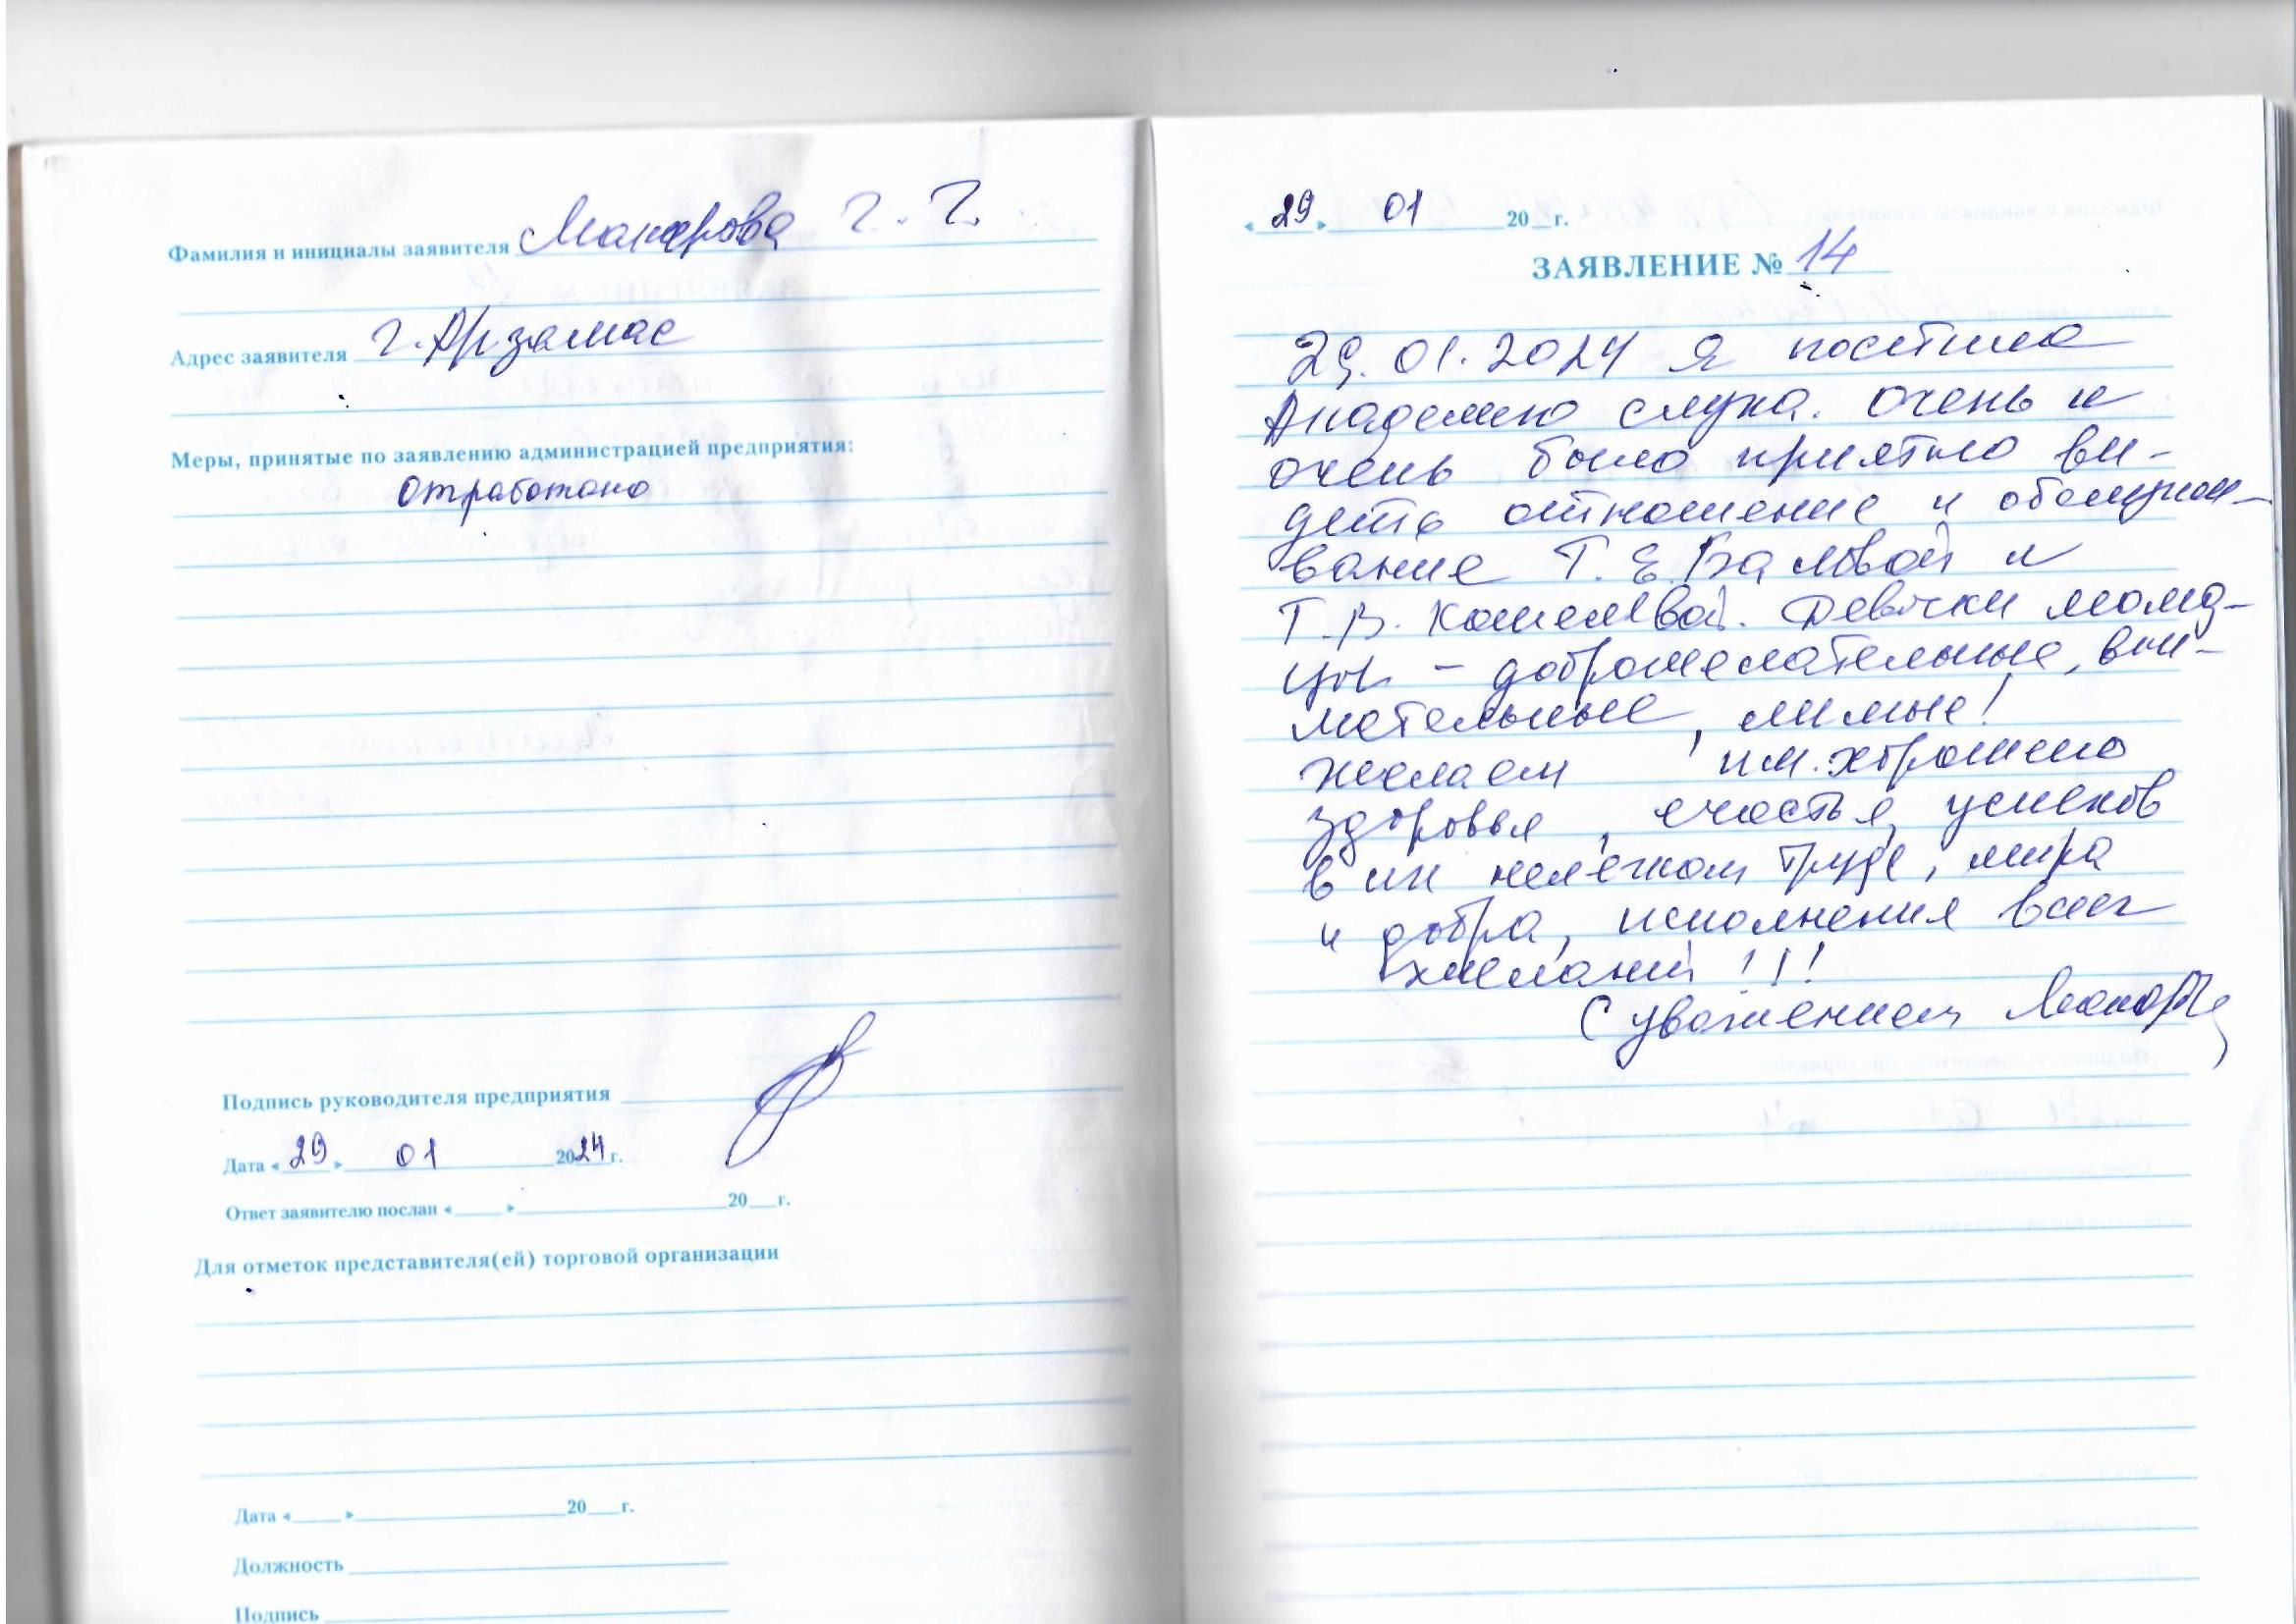 Фамилия и инициалы заявителя Макарова Г. Г.
Адрес заявителя г. Арзамас
Меры, принятые по заявлению администрацией предприятия:
отработано
Подпись руководителя предприятия
Дата « 29 » 01 2024 г.
Ответ заявителю послан « » 20 г.
Для отметок представителя(ей) торговой организации
Дата « » 20 г.
Должность
Подпись
« 29 » 01 20 г.
ЗАЯВЛЕНИЕ № 14
29.01.2024 я посетила
Академию слуха. Очень и
очень было приятно ви-
деть отношение и обслужи-
вание Т. Е.
Т. В. Кошелевой. Девочки молод-
цы – доброжелательные, вни-
мательные, милые!
Желаем им хорошего
здоровья, счастья, успехов
в их нелегком труде, мира
и добра, исполнения всех
желаний!!!
С уважением